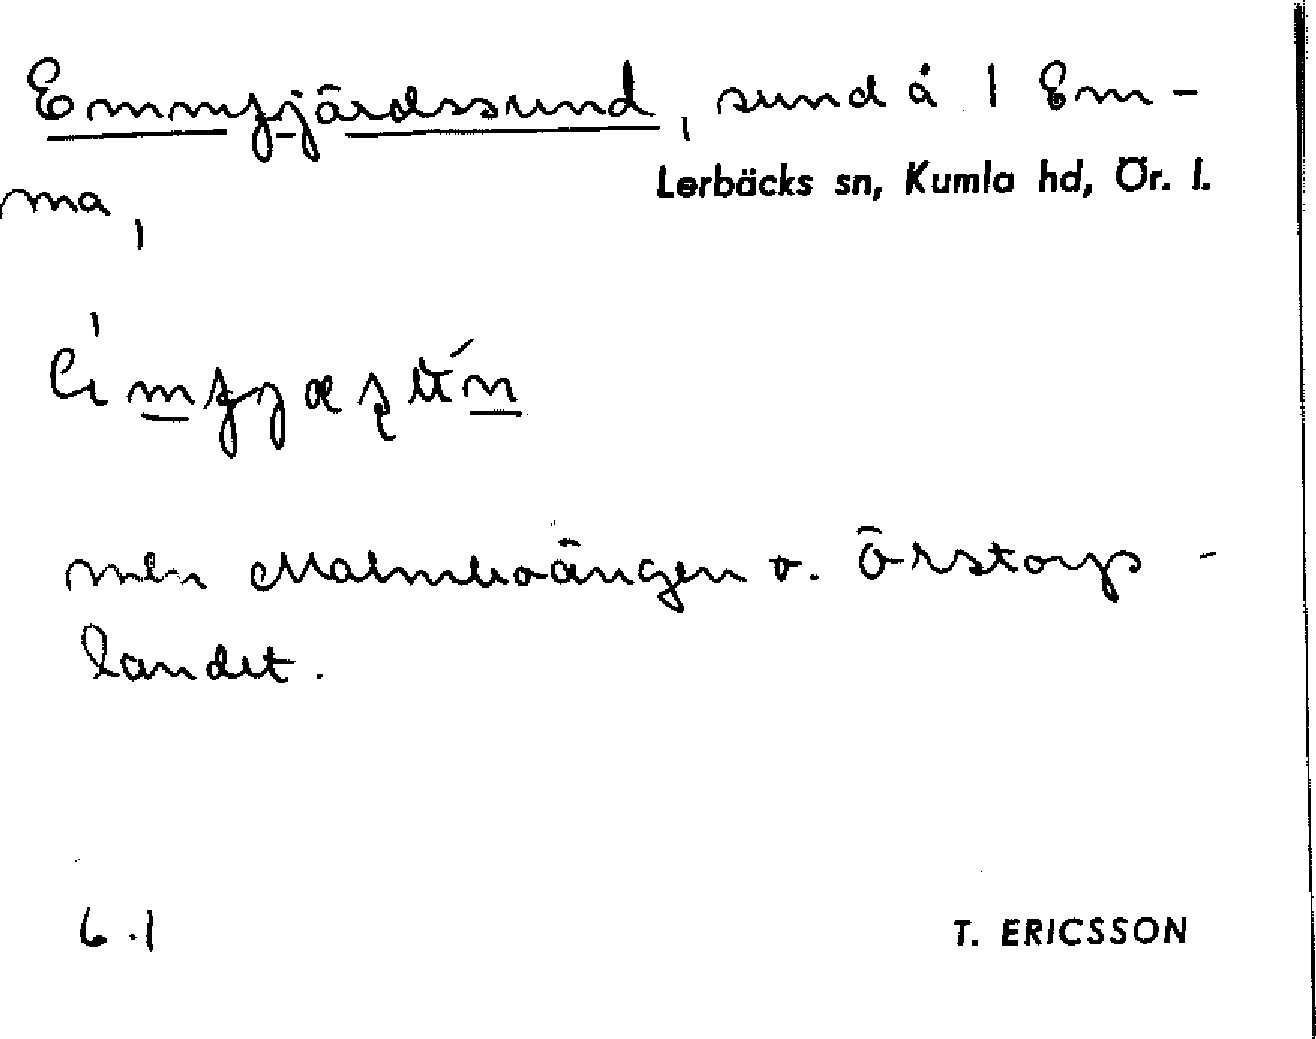 Emmfjärdssund, sund å 1 Em-
Lerbäcks sn, Kumla hd, Ör. l.
ma,
mln Malmboängen o. Örstorp-
landet.
6.1
T. ERICSSON